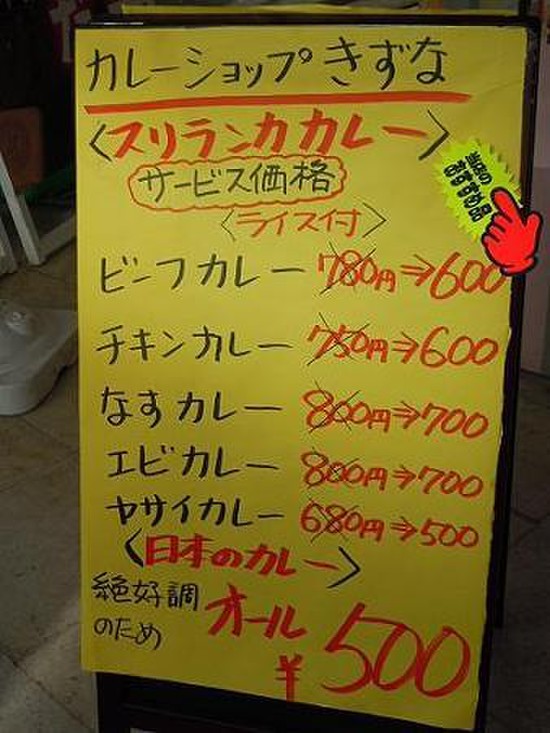 カレーショップきずな
〈スリランカカレー〉
サービス価格
〈ライス付〉
当店の
おすすめ品
ビーフカレー 780円⇒600
チキンカレー 750円⇒600
なすカレー 800円⇒700
エビカレー 800円⇒700
ヤサイカレー 680円⇒500
〈日本のカレー〉
絶好調
のため
オール
¥500